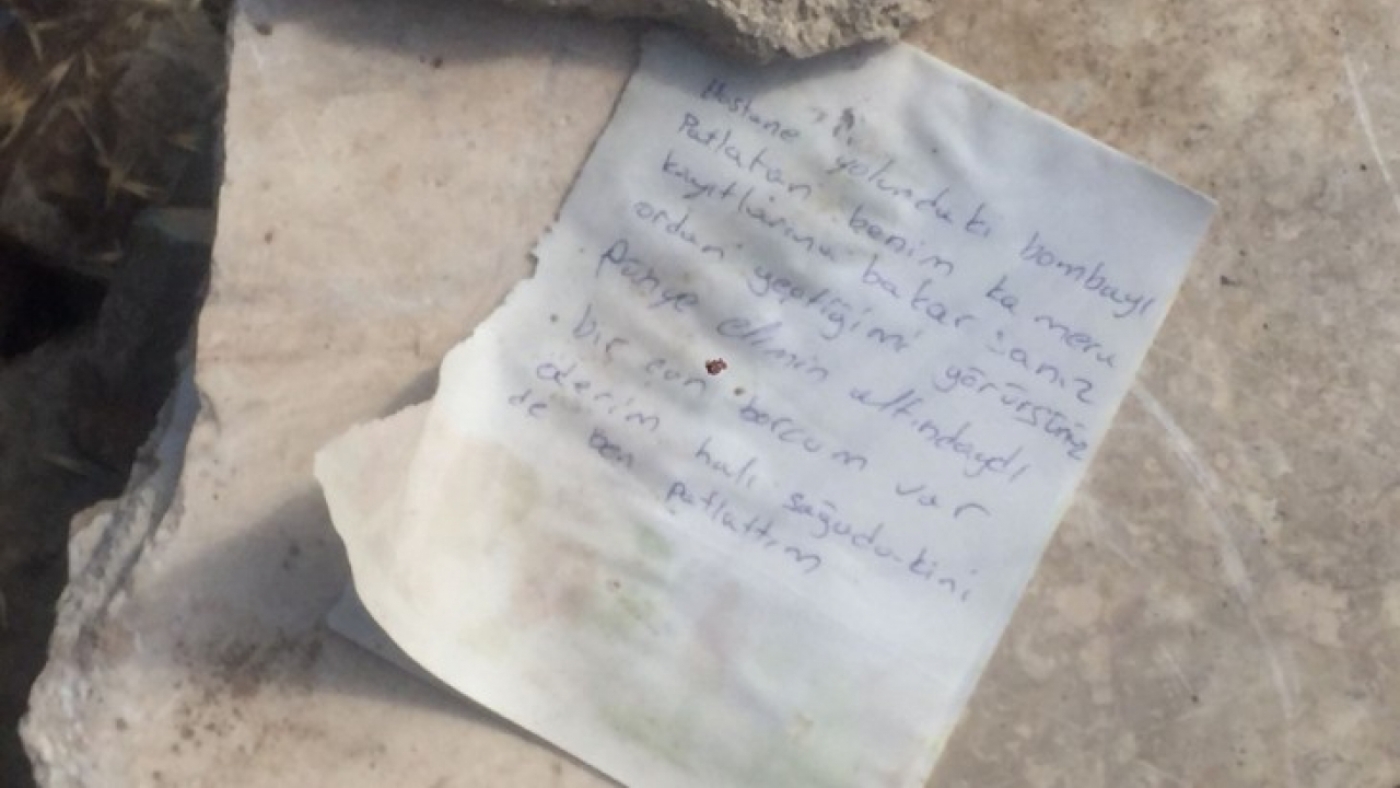 Hastane yolundaki bombayı
Patlatan benim kamera
kayıtlarına bakarsanız
ordan geçtiğimi görürsünüz
Panye elimin altındaydı
bir can borcum var
öderim halı sağada-kini
de ben patlattım